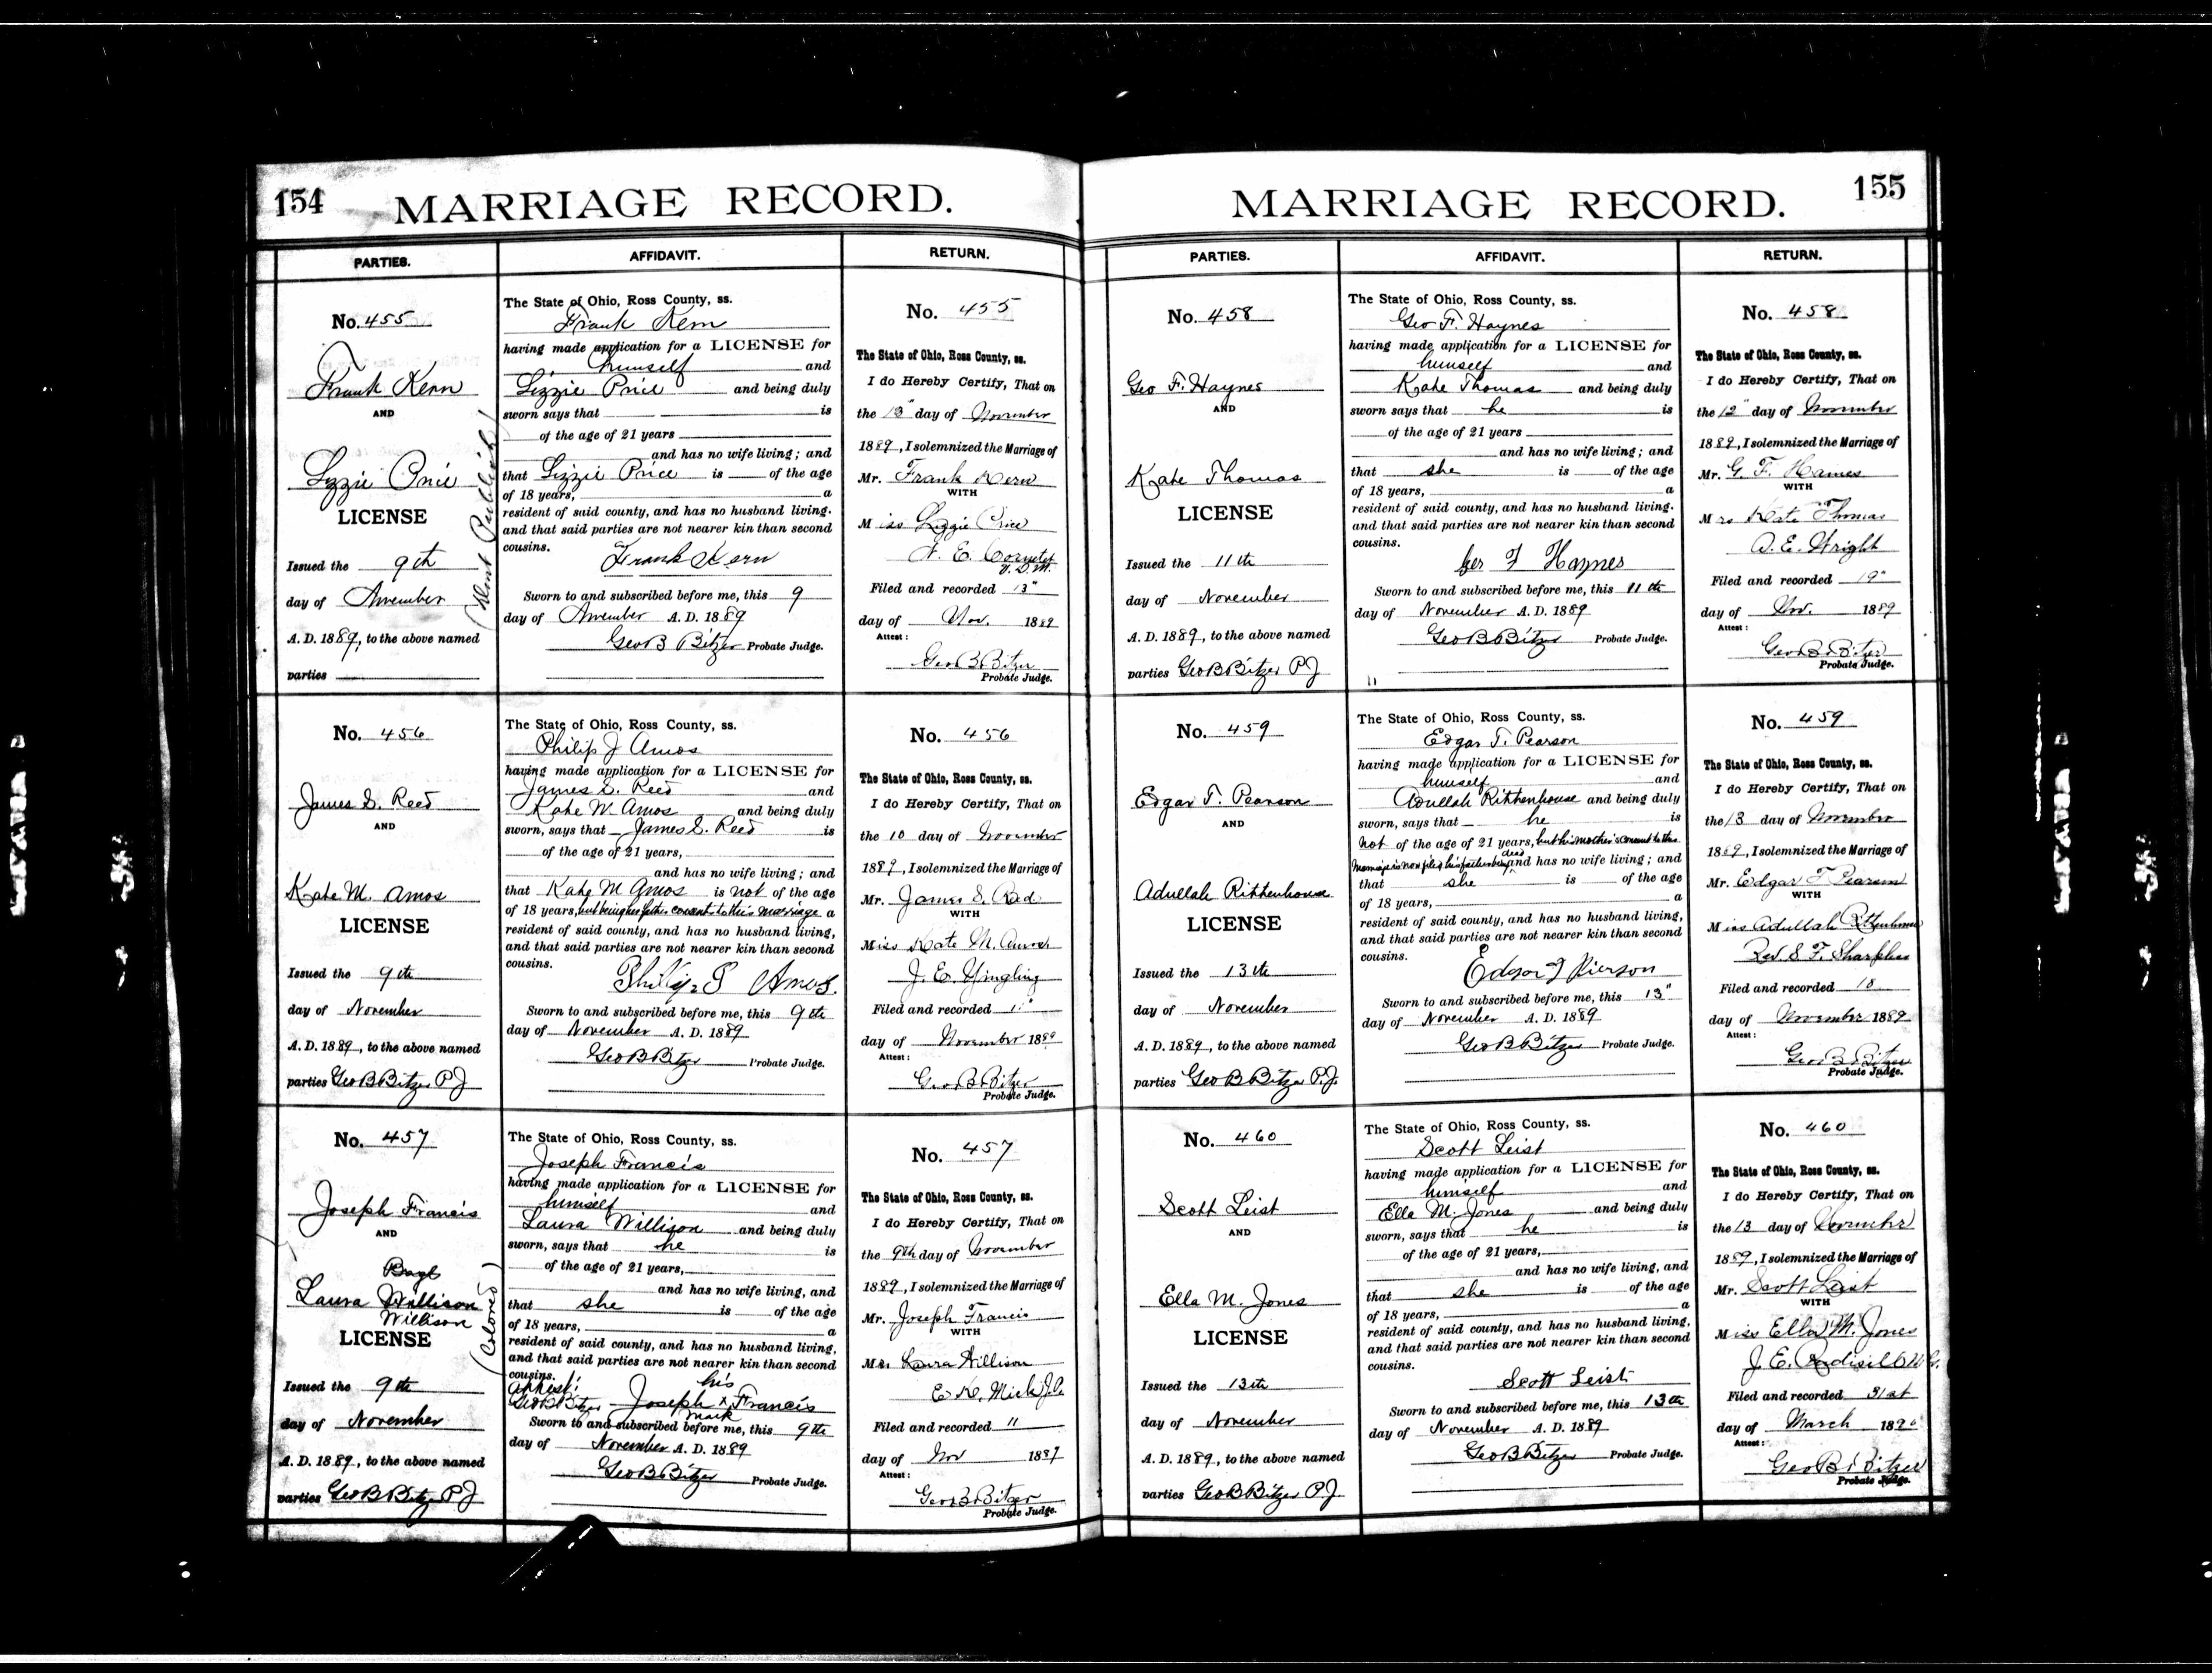 154
MARRIAGE RECORD.
PARTIES.
AFFIDAVIT.
RETURN.
No. 455
Frank Kern
AND
Lizzie Price
LICENSE
Issued the 9th
day of November
A. D. 1889, to the above named
parties
(Dont Publish)
The State of Ohio, Ross County, ss.
Frank Kern
having made application for a LICENSE for
himself and
Lizzie Price and being duly
sworn says that is
of the age of 21 years
and has no wife living; and
that Lizzie Price is of the age
of 18 years, a
resident of said county, and has no husband living.
and that said parties are not nearer kin than second
cousins.
Frank Kern
Sworn to and subscribed before me, this 9
day of November A. D. 1889
Geo B Bitzer Probate Judge.
No. 455
The State of Ohio, Ross County, ss.
I do Hereby Certify, That on
the 13" day of November
1889, I solemnized the Marriage of
Mr. Frank Kern
WITH
Miss Lizzie Price
Filed and recorded 13"
day of Nov. 1889
Attest:
Geo B Bitzer
Probate Judge.
No. 456
James S. Reed
AND
Kate M. Amos
LICENSE
Issued the 9th
day of November
A. D. 1889, to the above named
parties Geo B Bitzer P J
The State of Ohio, Ross County, ss.
Philip J Amos
having made application for a LICENSE for
James S. Reed and
Kate M. Amos and being duly
sworn, says that James S. Reed is
of the age of 21 years,
and has no wife living; and
that Kate M Amos is not of the age
of 18 years, but being her father consents to this marriage a
resident of said county, and has no husband living,
and that said parties are not nearer kin than second
cousins.
Amos.
Sworn to and subscribed before me, this 9th
day of November A. D. 1889
Geo B Bitzer Probate Judge.
No. 456
The State of Ohio, Ross County, ss.
I do Hereby Certify, That on
the 10 day of November
1889, I solemnized the Marriage of
Mr. James S. Reed
WITH
Miss Kate M. Amos
J. E. Yingling
Filed and recorded
day of November 1889
Attest:
Geo B Bitzer
Probate Judge.
No. 457
Joseph Francis
AND
Laura Willison
Willison
LICENSE
Issued the 9th
day of November
A. D. 1889, to the above named
parties Geo B Bitzer P J
(Colored)
The State of Ohio, Ross County, ss.
Joseph Francis
having made application for a LICENSE for
himself and
Laura Willison and being duly
sworn, says that he is
of the age of 21 years,
and has no wife living, and
that she is of the age
of 18 years, a
resident of said county, and has no husband living,
and that said parties are not nearer kin than second
cousins.
Attest: his
Geo B Bitzer Joseph x Francis
mark
Sworn to and subscribed before me, this 9th
day of November A. D. 1889
Geo B Bitzer Probate Judge.
No. 457
The State of Ohio, Ross County, ss.
I do Hereby Certify, That on
the 9th day of November
1889, I solemnized the Marriage of
Mr. Joseph Francis
WITH
Laura Willison
Filed and recorded 11
day of Nov 1889
Attest:
Geo B Bitzer
Probate Judge.
155
MARRIAGE RECORD.
PARTIES.
AFFIDAVIT.
RETURN.
No. 458
Geo F. Haynes
AND
Kate Thomas
LICENSE
Issued the 11th
day of November
A. D. 1889, to the above named
parties Geo B Bitzer P J
The State of Ohio, Ross County, ss.
Geo F. Haynes
having made application for a LICENSE for
himself and
Kate Thomas and being duly
sworn says that he is
of the age of 21 years
and has no wife living; and
that she is of the age
of 18 years, a
resident of said county, and has no husband living.
and that said parties are not nearer kin than second
cousins.
Geo F Haynes
Sworn to and subscribed before me, this 11th
day of November A. D. 1889
Geo B Bitzer Probate Judge.
No. 458
The State of Ohio, Ross County, ss.
I do Hereby Certify, That on
the 12" day of November
1889, I solemnized the Marriage of
Mr. G. F. Hames
WITH
Mrs Kate Thomas
A. E. Wright
Filed and recorded 19"
day of Nov. 1889
Attest:
Geo B Bitzer
Probate Judge.
No. 459
Edgar T. Pearson
AND
Adullah Rittenhouse
LICENSE
Issued the 13th
day of November
A. D. 1889, to the above named
parties Geo B Bitzer P. J.
The State of Ohio, Ross County, ss.
Edgar T. Pearson
having made application for a LICENSE for
himself and
Adullah Rittenhouse and being duly
sworn, says that he is
not of the age of 21 years, but his mother's consent to this
marriage is now filed his father being dead and has no wife living; and
that she is of the age
of 18 years, a
resident of said county, and has no husband living,
and that said parties are not nearer kin than second
cousins.
Edgar T Pierson
Sworn to and subscribed before me, this 13"
day of November A. D. 1889
Geo B Bitzer Probate Judge.
No. 459
The State of Ohio, Ross County, ss.
I do Hereby Certify, That on
the 13 day of November
1889, I solemnized the Marriage of
Mr. Edgar T Pearson
WITH
Miss Adullah Rittenhouse
Rev. S. F. Sharpless
Filed and recorded 18
day of November 1889
Attest:
Geo B Bitzer
Probate Judge.
No. 460
Scott Leist
AND
Ella M. Jones
LICENSE
Issued the 13th
day of November
A. D. 1889, to the above named
parties Geo B Bitzer P J.
The State of Ohio, Ross County, ss.
Scott Leist
having made application for a LICENSE for
himself and
Ella M. Jones and being duly
sworn, says that he is
of the age of 21 years,
and has no wife living, and
that she is of the age
of 18 years, a
resident of said county, and has no husband living,
and that said parties are not nearer kin than second
cousins.
Scott Leist
Sworn to and subscribed before me, this 13th
day of November A. D. 1889
Geo B Bitzer Probate Judge.
No. 460
The State of Ohio, Ross County, ss.
I do Hereby Certify, That on
the 13 day of November
1889, I solemnized the Marriage of
Mr. Scott Leist
WITH
Miss Ella M. Jones
J. E.
Filed and recorded 31st
day of March 1890
Attest:
Geo B Bitzer
Probate Judge.